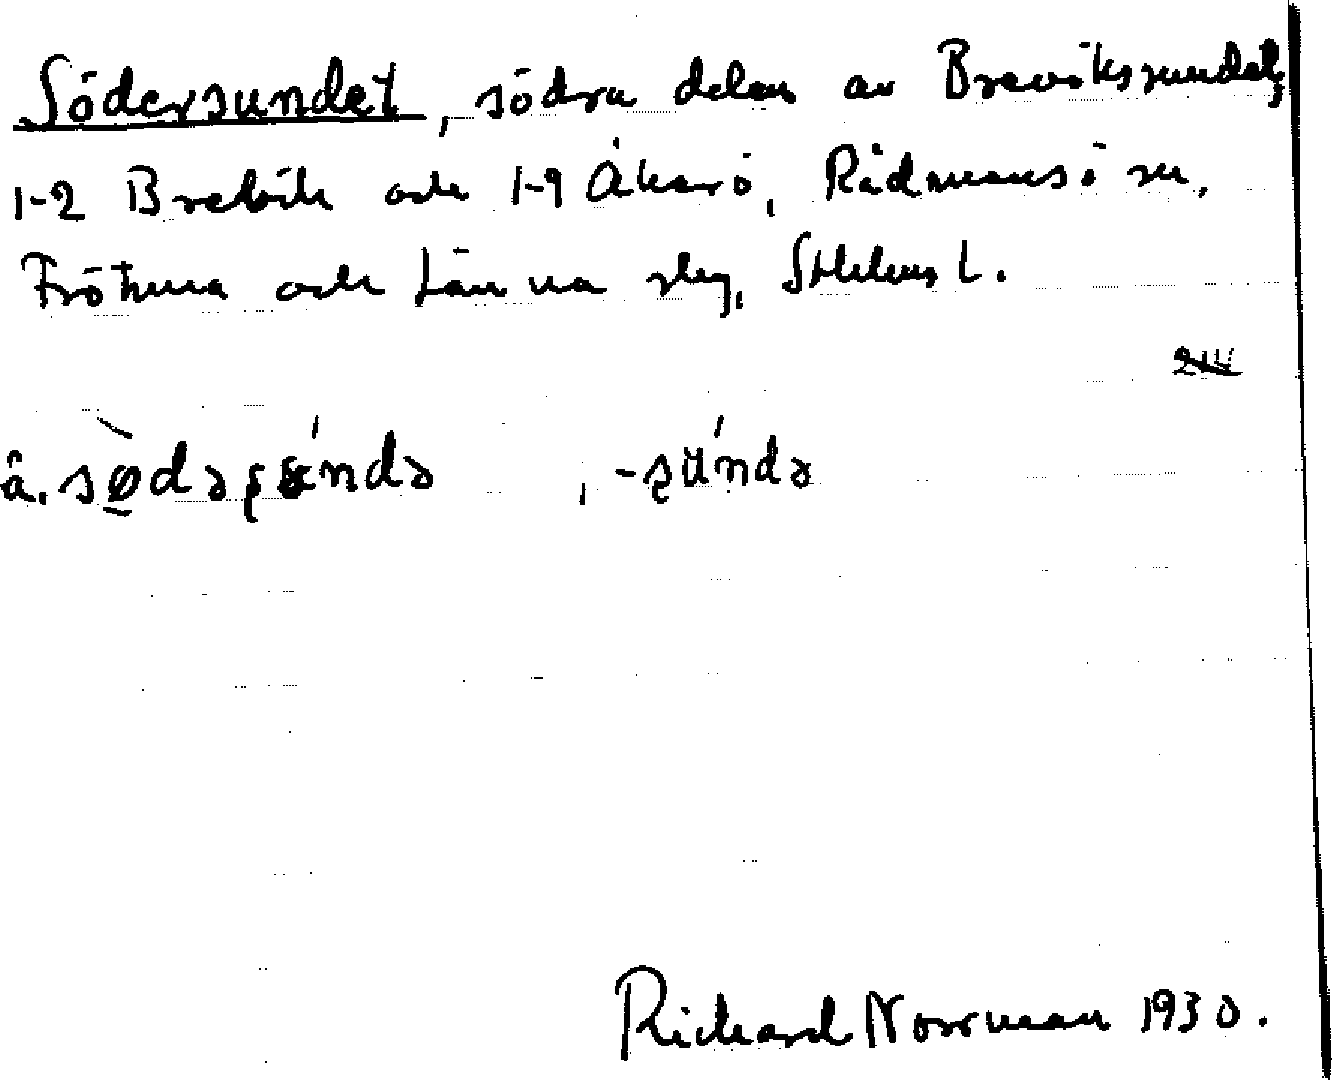 Södersundet, södra delen av Breviksundet,
1-2 Brevik och 1-9 Åkerö, Rådmansö sn,
Frötuna och Länna skg, Sthlms l.
å. sødəʂúndə , -ʂúndə
Richard Norrman 1930.